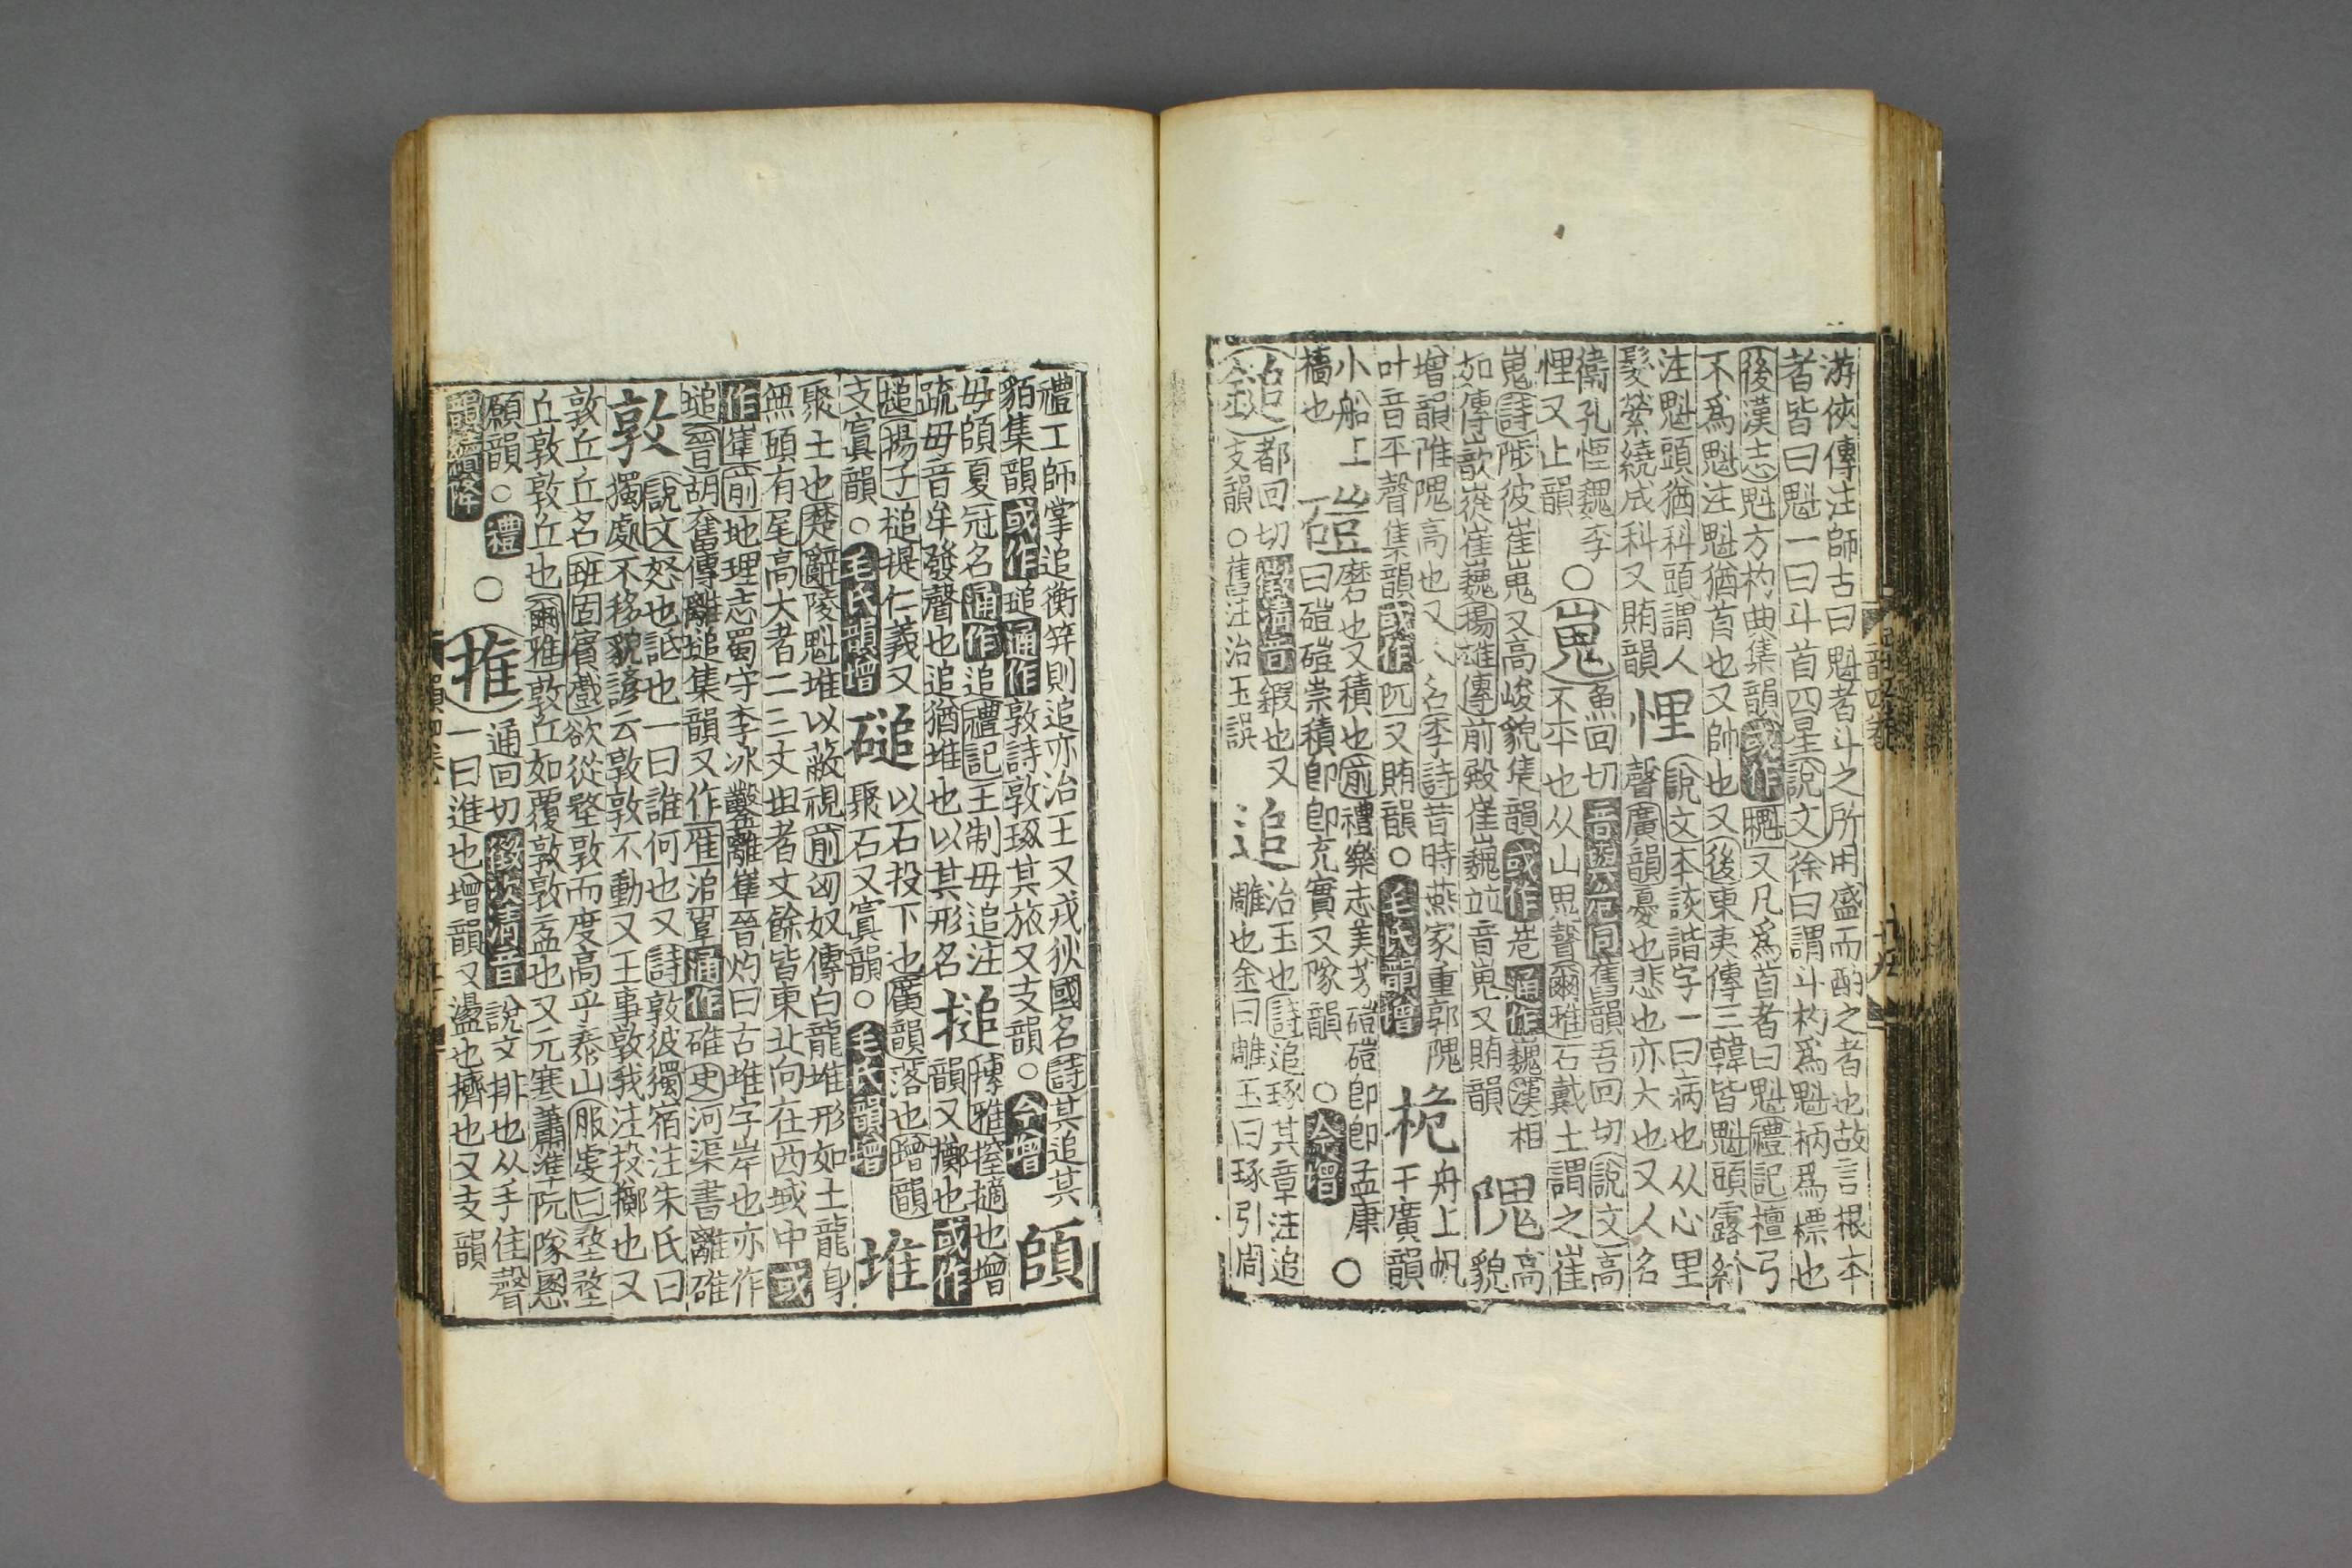 游俠傳注師古曰魁者斗之所用盛而酌之者也故言根本
者皆曰魁一曰斗首四星說文徐曰謂斗杓為魁柄為標也
後漢志魁方杓曲集韻或作𣂬又凡為首者曰魁禮記檀弓
不為魁注魁猶首也又帥也又後東夷傳三韓皆魁頭露紒
注魁頭猶科頭謂人
髮縈繞成科又賄韻
悝
說文本詼諧字一曰病也从心里
聲廣韻憂也悲也亦大也又人名
衞孔悝魏李
悝又止韻
○
嵬
魚回切音與危同舊韻吾回切說文高
不平也从山鬼聲爾雅石戴土謂之崔
嵬詩陟彼崔嵬又高峻貌集韻或作峞通作巍漢相
如傳嶔嵸崔巍揚雄傳前殿崔巍竝音嵬又賄韻
隗
高
貌
增韻陮隗高也又人名李詩昔時燕家重郭隗
叶音平聲集韻或作阢又賄韻○毛氏韻增
桅
舟上帆
干廣韻
小船上
檣也
磑
磨也又積也前禮樂志美芳磑磑即即孟康
曰磑磑崇積即即充實又隊韻○今增
○
磓
都回切徵清音鍜也又
支韻○舊注治玉誤
追
治玉也詩追琢其章注追
雕也金曰雕玉曰琢引周
禮工師掌追衡笄則追亦治玉又戎狄國名詩其追其
貊集韻或作㙜通作敦詩敦琢其旅又支韻○今增
頧
毋頧夏冠名通作追禮記王制毋追注
䟽毋音牟發聲也追猶堆也以其形名
搥
博雅擿也增
韻又擲也或作
搥揚子搥提仁義又
支寘韻○毛氏韻增
磓
以石投下也廣韻落也增韻
聚石又寘韻○毛氏韻增
堆
聚土也楚辭陵魁堆以蔽視前匈奴傳白龍堆形如土龍身
無頭有尾高大者二三丈埤者丈餘皆東北向在西域中或
作㟎前地理志蜀守李冰鑿離㟎晉灼曰古堆字岸也亦作
塠晉胡奮傳離塠集韻又作𨸏通作碓史河渠書離碓
敦
說文怒也詆也一曰誰何也又詩敦彼獨宿注朱氏曰
獨處不移貌諺云敦敦不動又王事敦我注投擲也又
敦丘丘名班固賓戲欲從堥敦而度高乎泰山服虔曰
丘敦敦丘也爾雅敦丘如覆敦敦盂也又元寒蕭準阮隊慁
願韻○禮
韻續降
○
推
通回切徵次清音說文排也从手隹聲
一曰進也增韻又盪也擠也又支韻